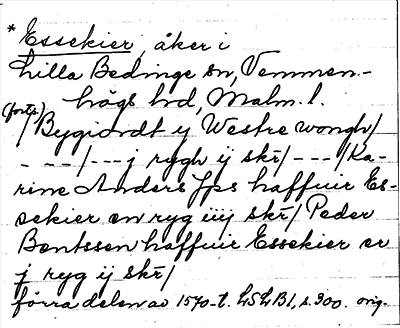 *Essekier, åker i
Lilla Bedinge sn, Vemmen-
högs hd, Malm. l.
(forts.)
/Bygiordt y Westre wongh/
- - -/- - - j rygh ij skr/ - - - /Ka-
rine Anders Jps haffuir Es-
sekier en ryg iiij skr/ Peder
Bentssen haffuir Essekier er
j ryg ij skr/
förra delen av 1570-t. LSLB1, s. 300. orig.